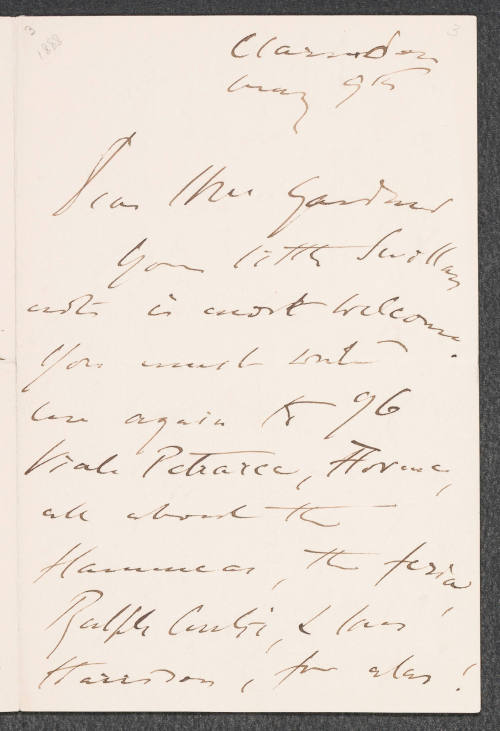 3
1888
3
Clarendon
May 9th
Dear Mrs Gardner
Your little Sevillan
note is most welcome.
You must write
me again to 96
Viale Petrarca, Florence,
all about the
Flamencas, the feria,
Ralph Curtis, & Mrs
Harrison, for alas!